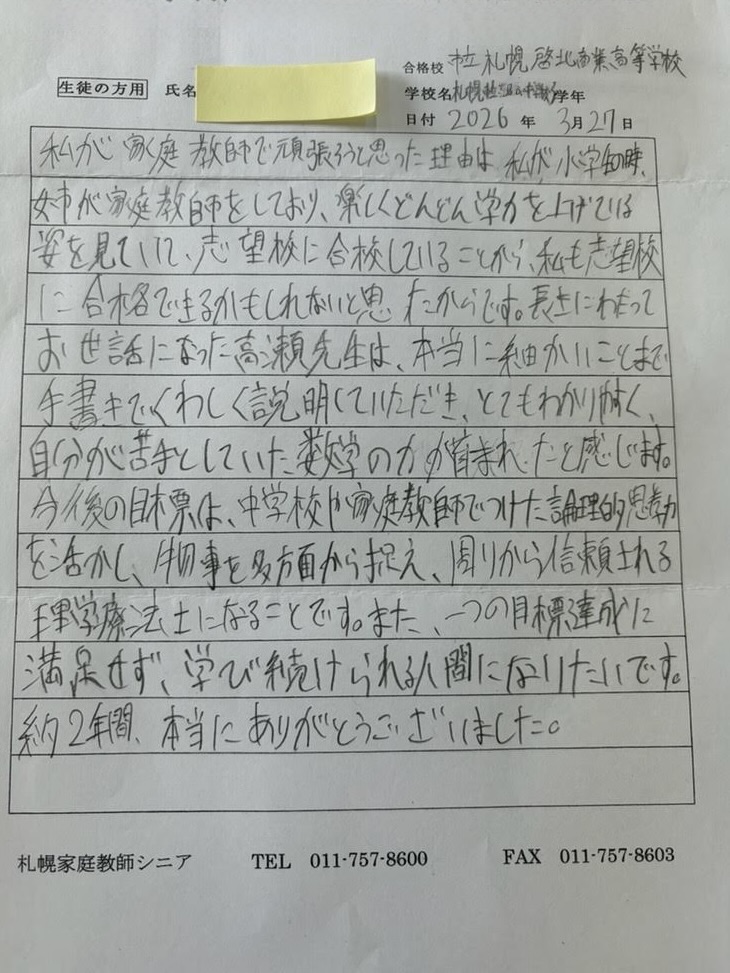 合格校 市立札幌啓北商業高等学校
生徒の方用 氏名
学校名 札幌 中学校 学年
日付 2026 年 3月27日
私が家庭教師で頑張ろうと思った理由は、私が小学生の時、
姉が家庭教師をしており、楽しくどんどん学力を上げている
姿を見ていて、志望校に合格していることから、私も志望校
に合格できるかもしれないと思ったからです。長きにわたって
お世話になった高瀬先生は、本当に細かいことまで
手書きでくわしく説明していただき、とてもわかり易く、
自分が苦手としていた数学の力が育まれたと感じます。
今後の目標は、中学校や家庭教師でつけた論理的思考力
を活かし、物事を多方面から捉え、周りから信頼される
理学療法士になることです。また、一つの目標達成に
満足せず、学び続けられる人間になりたいです。
約2年間、本当にありがとうございました。
札幌家庭教師シニア TEL 011-757-8600 FAX 011-757-8603